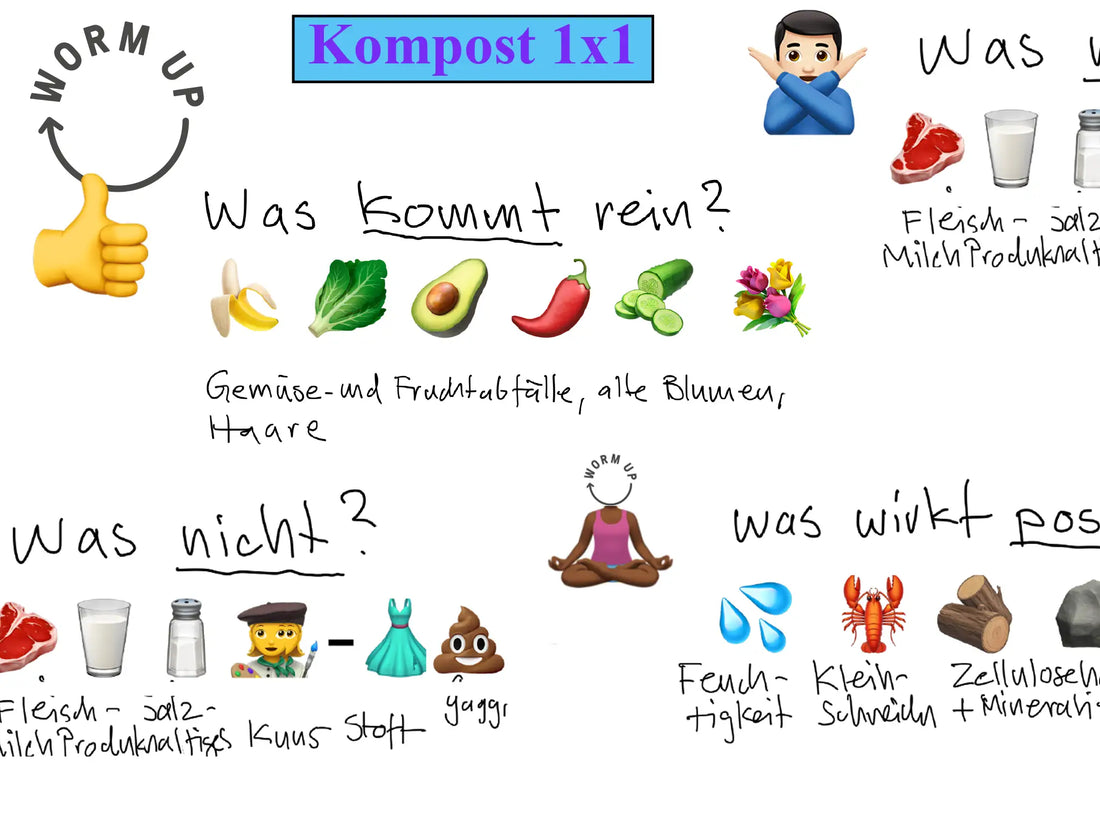 WORM UP
Kompost 1x1
Was
Fleisch- Salz
MilchProdukhaltis
Was kommt rein?
Gemüse-und Fruchtabfälle, alte Blumen,
Haare
WORM UP
Was nicht?
Fleisch- Salz-
MilchProdukhaltiges
Kuns Stoff
Gaggi
was wirkt pos
Feuch-
tigkeit
Klein-
Schneidn
Zellulose
+ Minerali